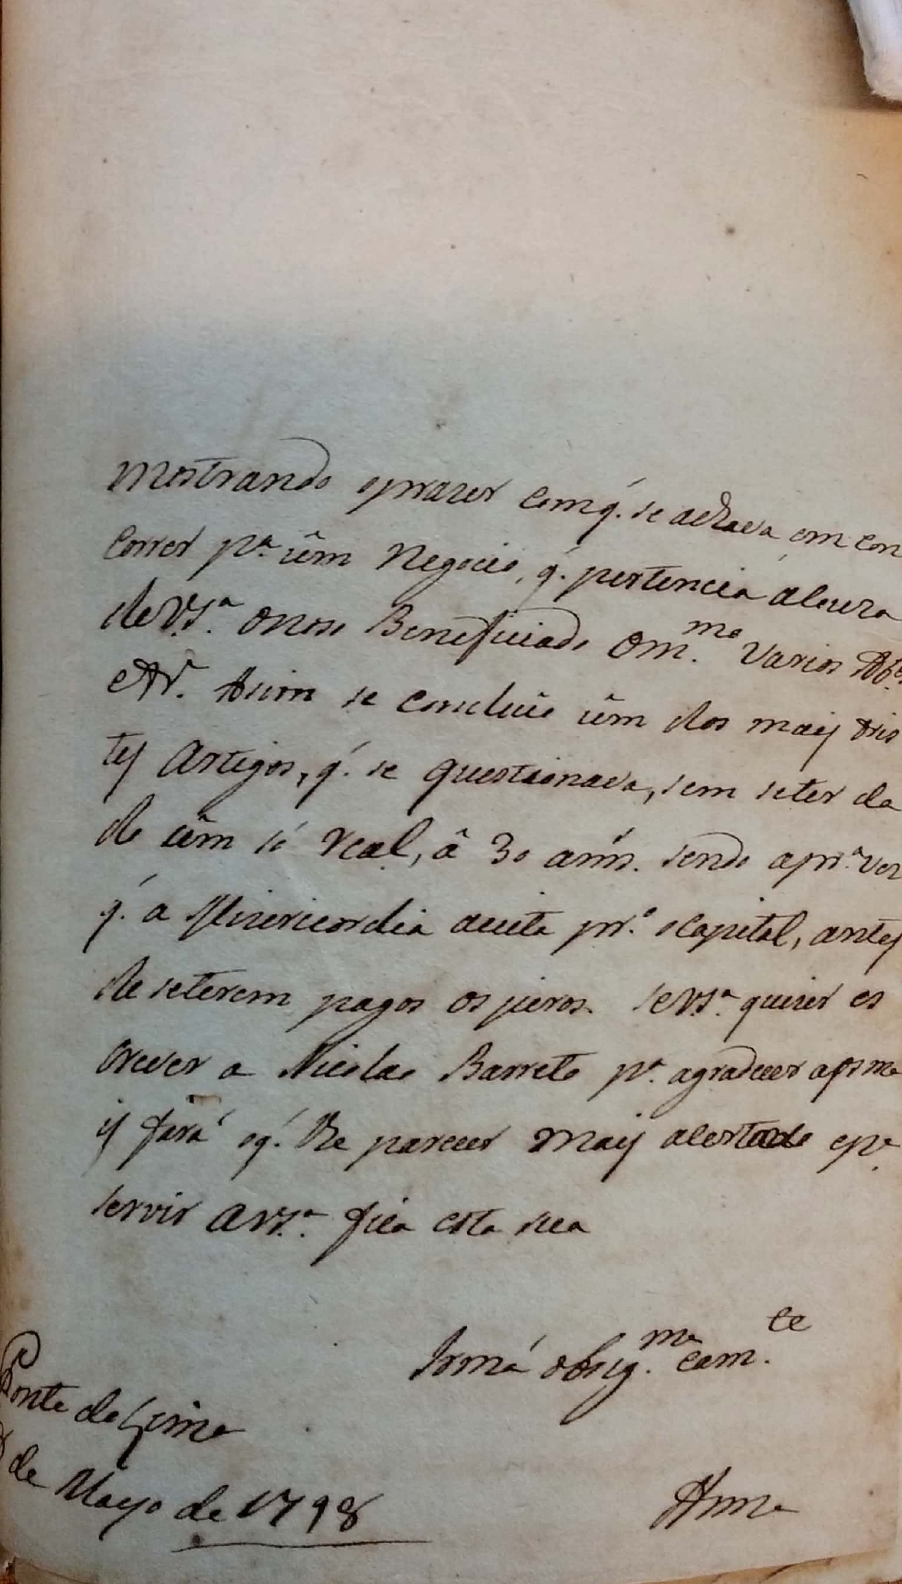 mostrando oprazer Comq̃. se achava em con
Correr pª. ûm Negocio, q̃. pertencia ácuza
de VSª. o noso Beneficiado Om.mo Varios
Asim se concluio ûm dos mais tris
tes Artigos, q̃. se questionava, sem seter da
do ûm só real, â 30 anñ. sendo aprª. vez
q̃. a Mizericordia aceita prº. ocapital, antes
de seterem pagos os juros. SeVSª. quizer es
crever a Nicolao Barreto pª. agradecer
is fará oq̃. lhe parecer mais acertado epª.
servir aVSª. fica esta sua
Irmá obrig.ma eam.te
Ponte de Lima
de Mayo de 1798
Anna